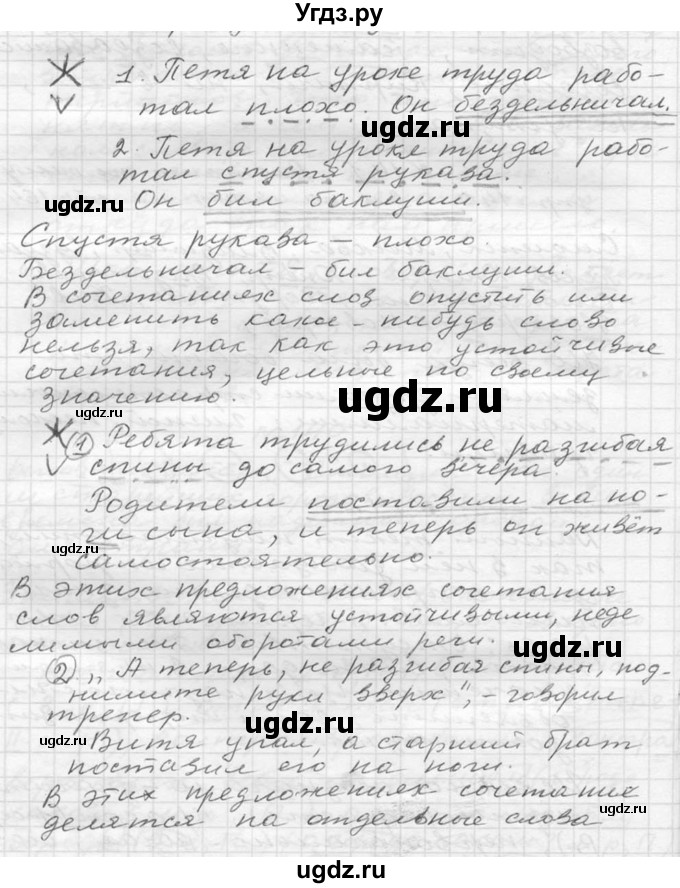 Угдз.ру
1. Петя на уроке труда рабо-
тал плохо. Он бездельничал.
ugdz.ru
ugdz.ru
2. Петя на уроке труда рабо-
тал спустя рукава.
ugdz.ru
Он бил баклуши.
Спустя рукава – плохо.
ugdz.ru
Бездельничал – бил баклуши.
В сочетаниях слов опустить или
заменить какое-нибудь слово
нельзя, так как это устойчивые
сочетания, цельные по своему
значению.
ugdz.ru
ugdz.ru
1 Ребята трудились не разгибая
спины до самого вечера.
Родители поставили на но-
ги сына, и теперь он живёт
ugdz.ru
самостоятельно.
ugdz.ru
В этих предложениях сочетания
слов являются устойчивыми, неде
лимыми оборотами речи.
ugdz.ru
2 „А теперь, не разгибая спины, под-
ugdz.ru
нимите руки вверх", – говорил
тренер.
ugdz.ru
ugdz.ru
Витя упал, а старший брат
поставил его на ноги.
В этих предложениях сочетание
ugdz.ru
делятся на отдельные слова
ugdz.ru
ugdz.ru